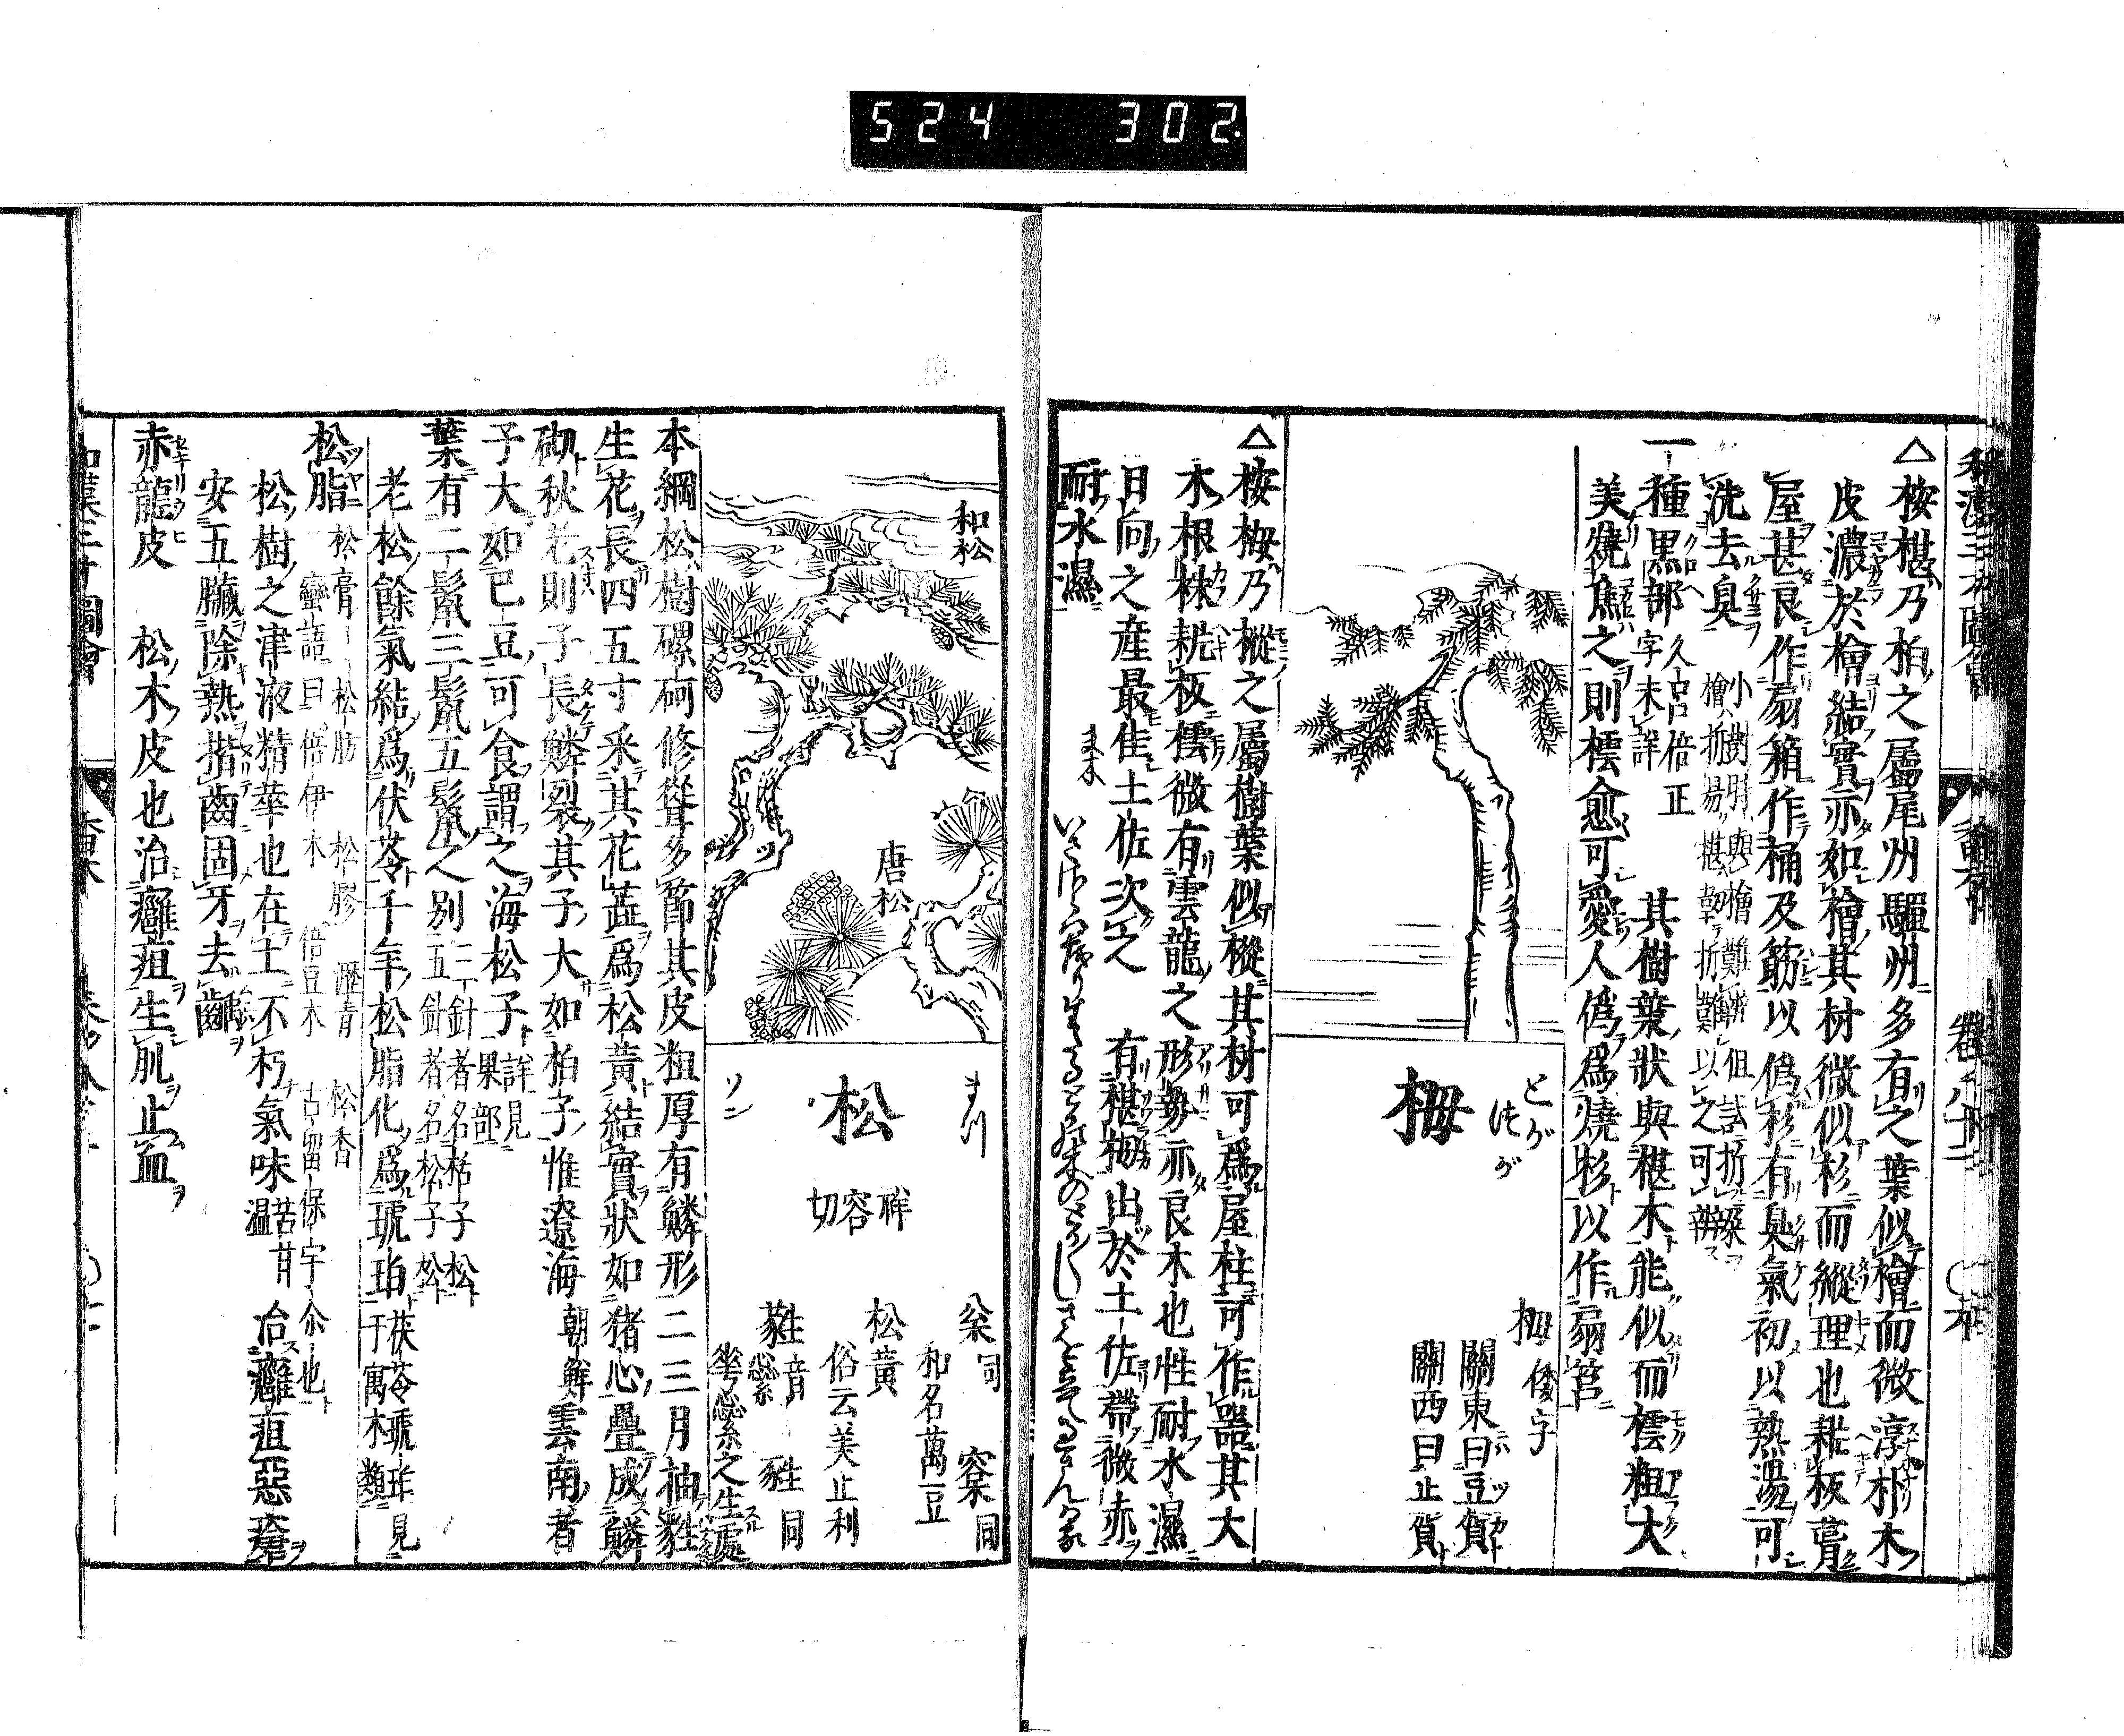 524 302
△按椹乃柏之屬尾州驪州多有之葉似檜而微淳朴木
皮濃於檜結實亦如檜其材微似杉而縱理也耗板薄
屋甚良作扇箱作桶及筯以僞杉有臭氣初以熱湯可
洗去臭
小樹時與檜難辨但試折
檜折易椹靭折難以之可辨
一種黒部
久呂倍正
字未詳
其樹葉狀與椹木能似而橒粗大
美燒焦之則橒愈可愛人僞爲燒杉以作扇筥
とが
つが
栂
栂 倭字
關東曰豆賀
關西曰止賀
△按栂乃樅之屬樹葉似樅其材可爲屋柱可作器其大
木根株耗板橒微有雲龍之形勢亦良木也性耐水濕
日向之產最佳土佐次之 有椹栂出於土佐帶微赤
耐水濕
和松
唐松
まつ
松
ソン
祥
容
切
枀同 㮤同
和名萬豆
松黃
俗云美止利
本綱松樹磥砢修聳多節其皮粗厚有鱗形二三月抽蕤
生花長四五寸采其花蕋爲松黃結實狀如猪心疊成鱗
砌秋老則子長鱗裂其子大如柏子惟遼海 朝鮮雲南者
子大如巴豆可食謂之海松子
詳見
果部
葉有二鬛三鬛五鬛之別
三針者名栝子松
五針者名松子松
老松餘氣結爲伏苓千年松脂化爲琥珀
茯苓琥珀見
于寓木類
松脂
松膏 松肪 松膠 瀝青 松香
蠻語曰
松樹之津液精華也在土不朽氣味
苦甘
温
治癰疽惡瘡
安五臟除熱揩齒固牙去齲
赤龍皮 松木皮也治癰疽生肌止血